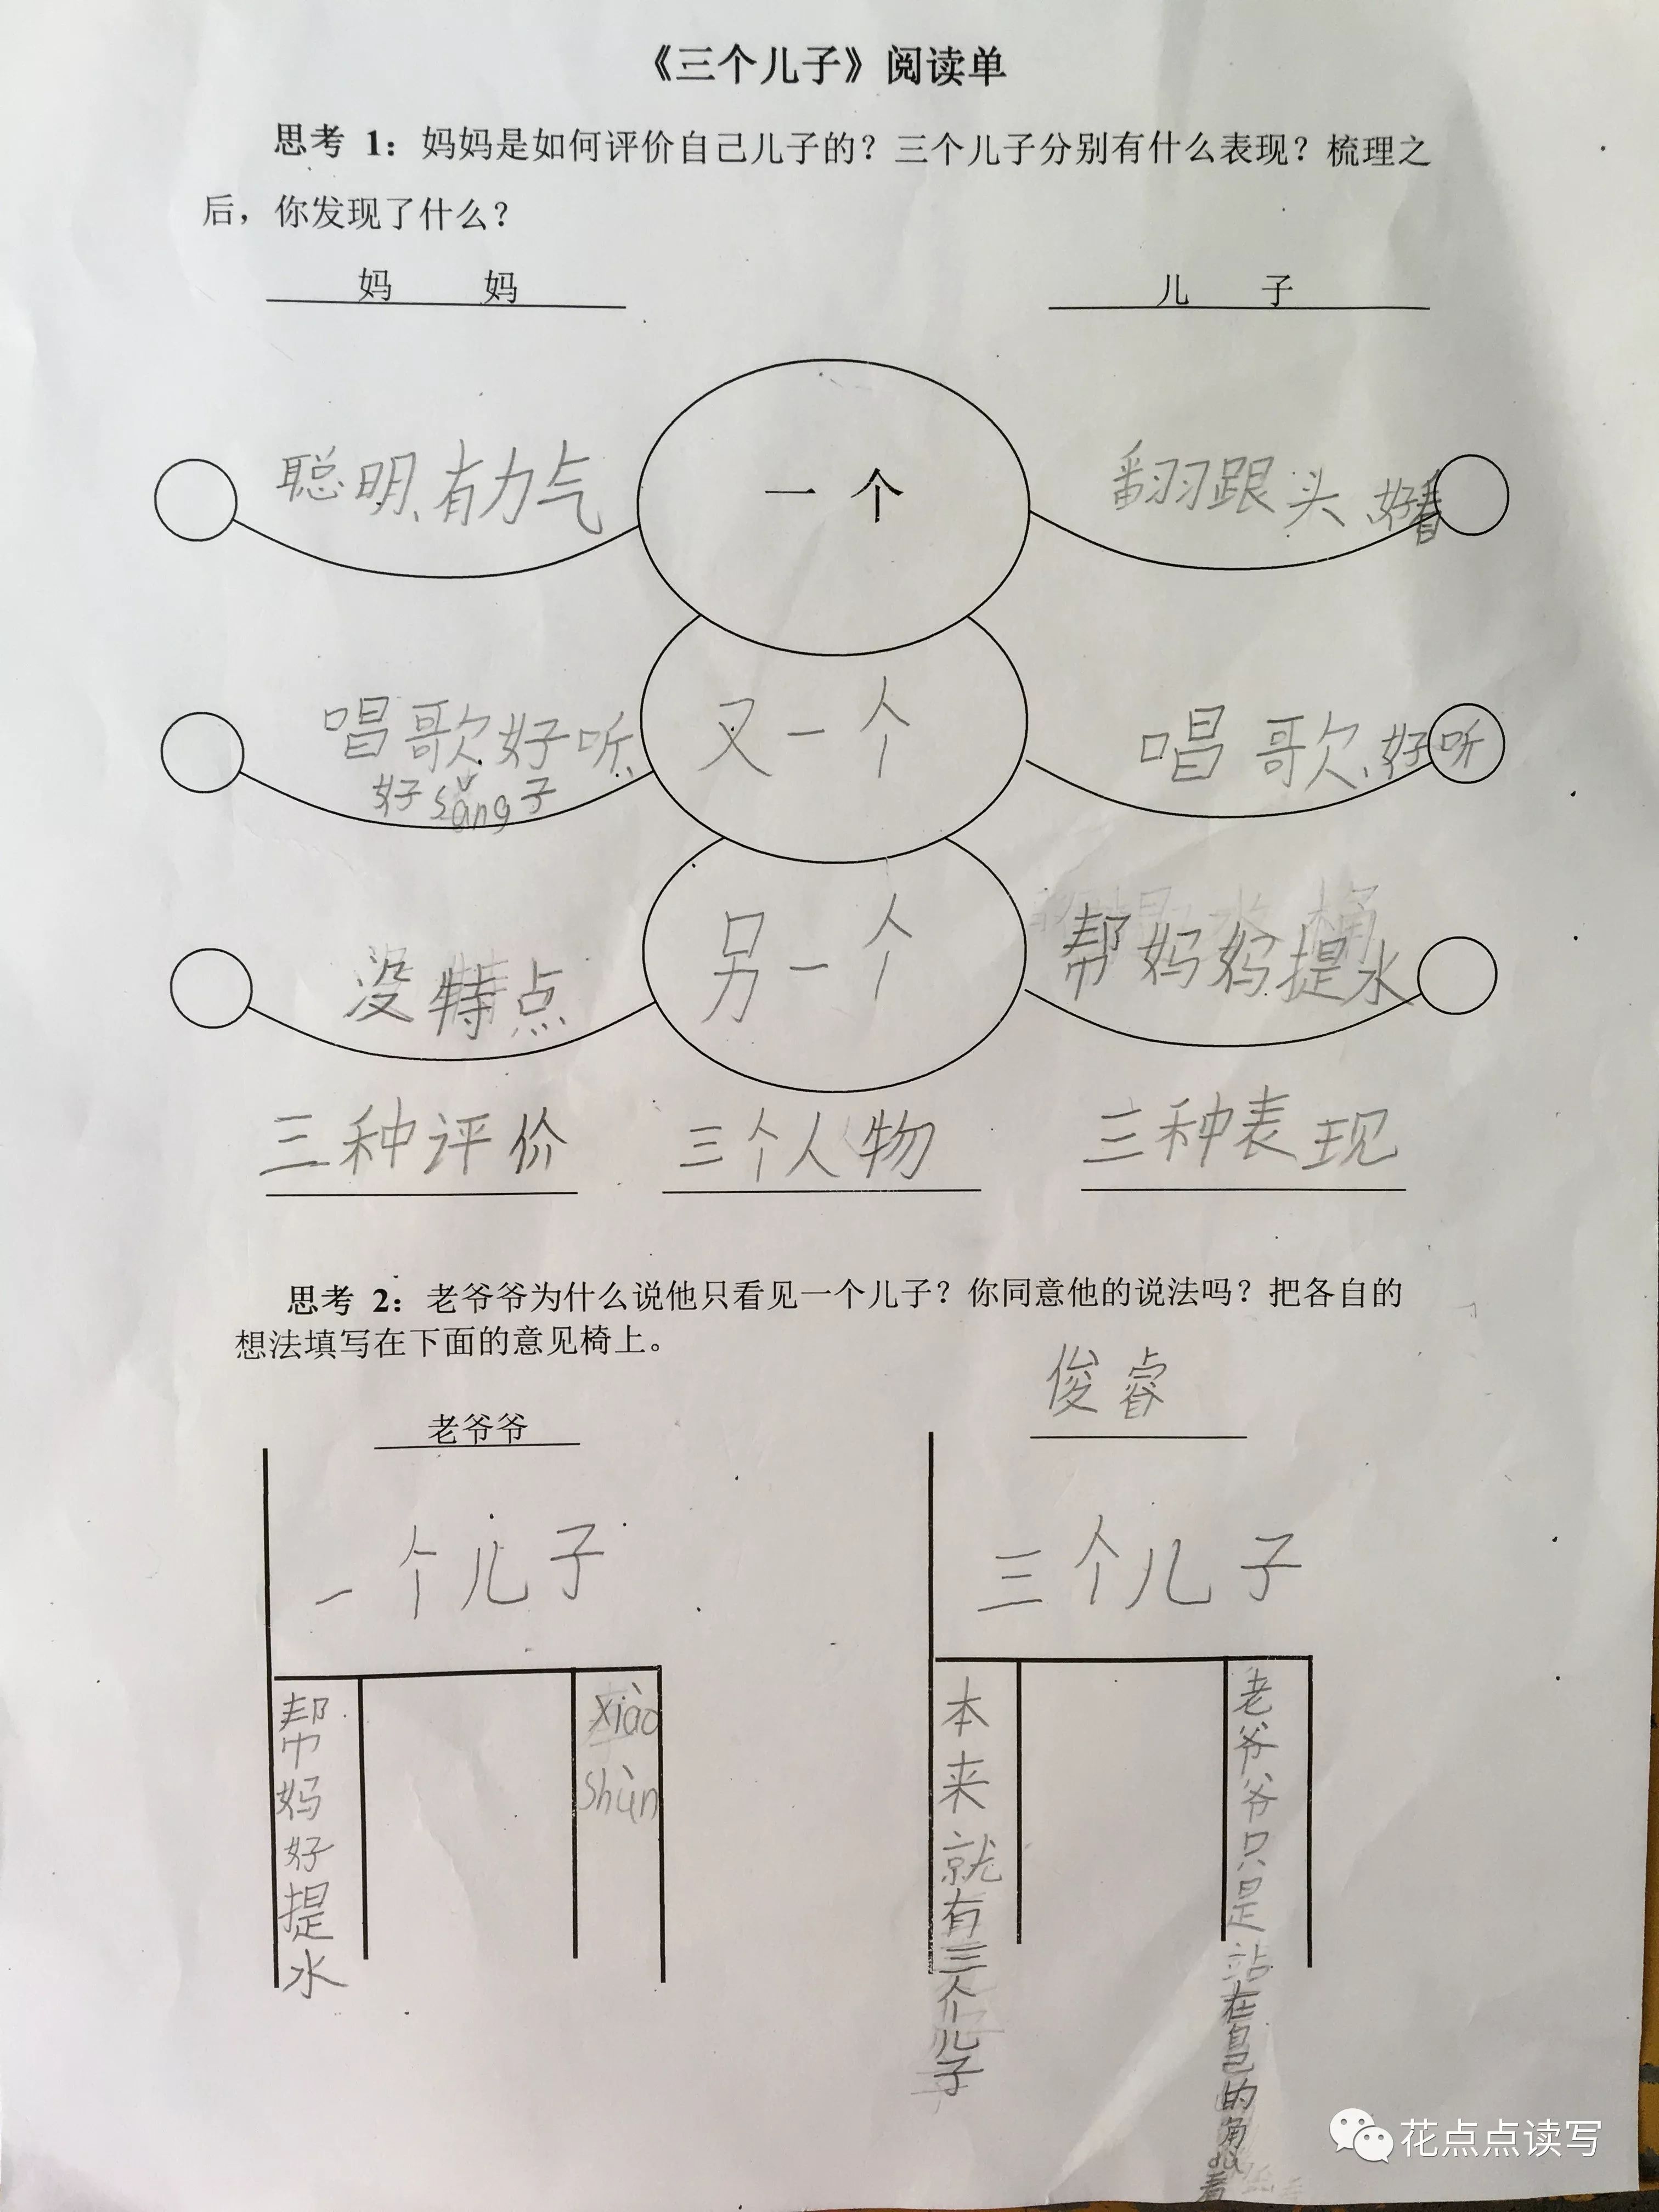 《三个儿子》阅读单
思考 1：妈妈是如何评价自己儿子的？三个儿子分别有什么表现？梳理之
后，你发现了什么？
妈 妈
儿 子
聪明、有力气
一 个
翻跟头、好看
唱歌好听、
好sǎng子
又一个
唱歌、好听
没特点
另一个
帮妈妈提水
三种评价
三个人物
三种表现
思考 2：老爷爷为什么说他只看见一个儿子？你同意他的说法吗？把各自的
想法填写在下面的意见椅上。
老爷爷
俊睿
一个儿子
三个儿子
帮妈好提水
xiào
shùn
本来就有三个儿子
老爷爷只是站在自己的角dù看
花点点读写